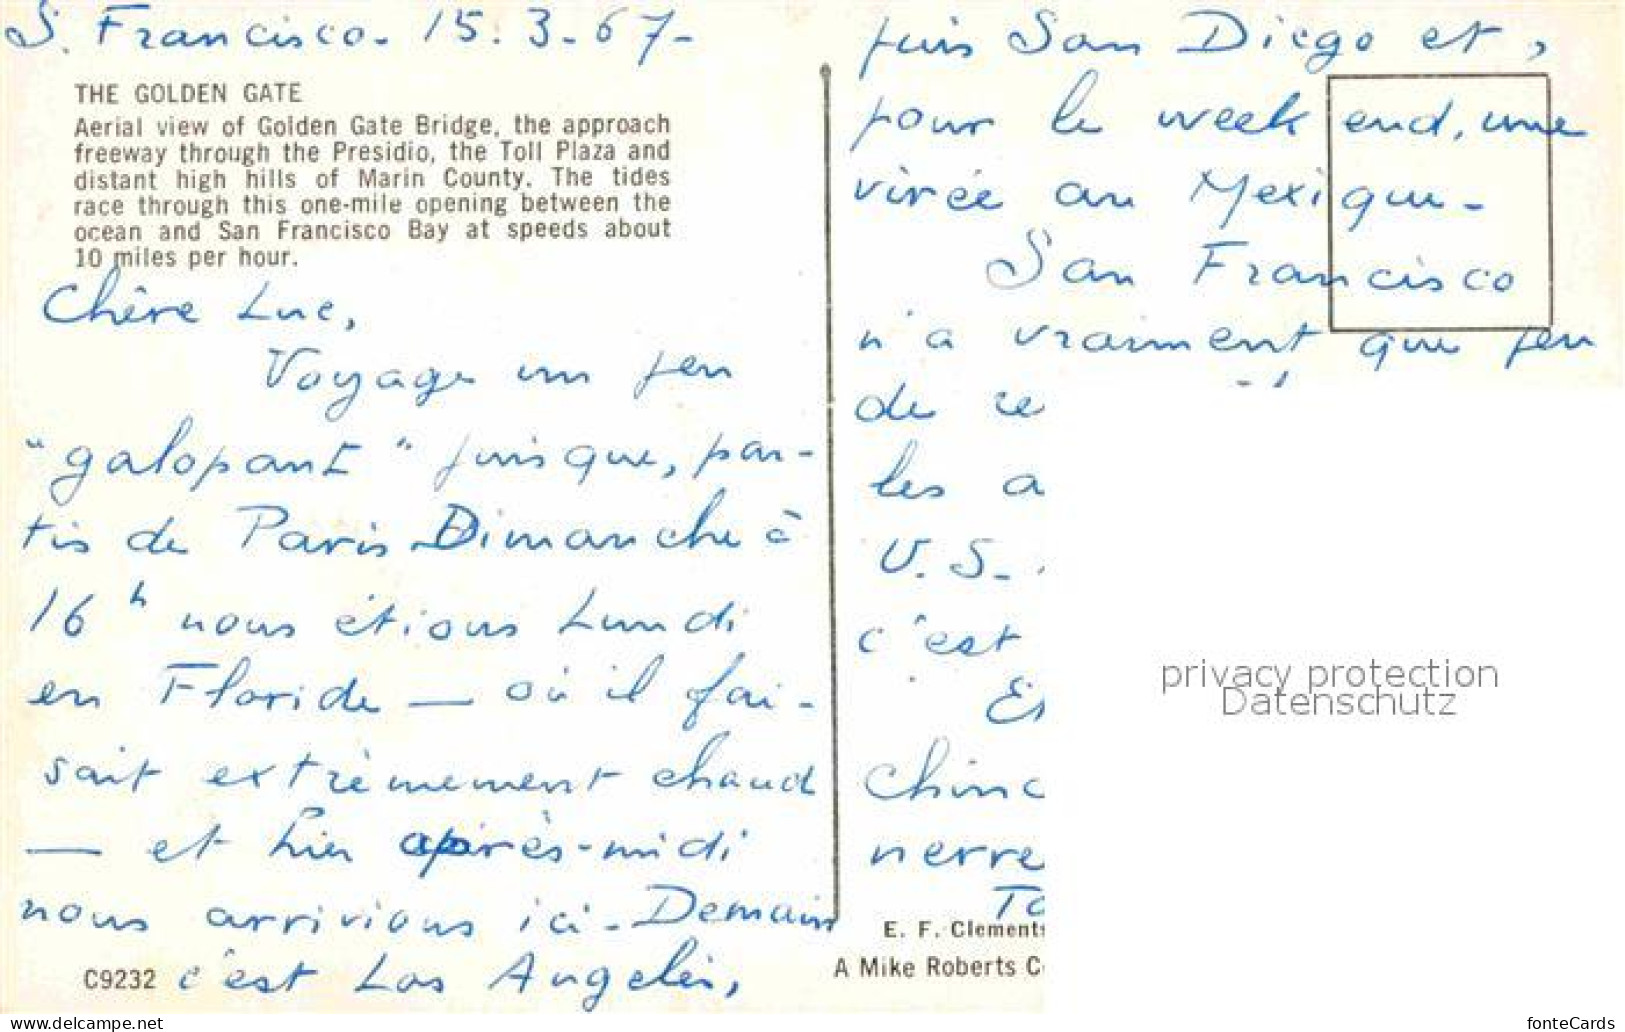 S. Francisco. 15.3.67-
THE GOLDEN GATE
Aerial view of Golden Gate Bridge, the approach
freeway through the Presidio, the Toll Plaza and
distant high hills of Marin County. The tides
race through this one-mile opening between the
ocean and San Francisco Bay at speeds about
10 miles per hour.
Chère Luc,
Voyage un peu
"galopant" puisque, par-
tis de Paris Dimanche à
16 h nous étions Lundi
en Floride — où il fai-
sait extrèmement chaud
— et hier après-midi
nous arrivions ici. Demain
c'est Los Angelès,
C9232
puis San Diego et,
pour le week end, une
virée au Mexique-
San Francisco
n'a vraiment que peu
de re
les a
U.S.
c'est
Et
chinc
nerre
To
E. F. Clements
A Mike Roberts C
privacy protection
Datenschutz
www.delcampe.net
fonteCards